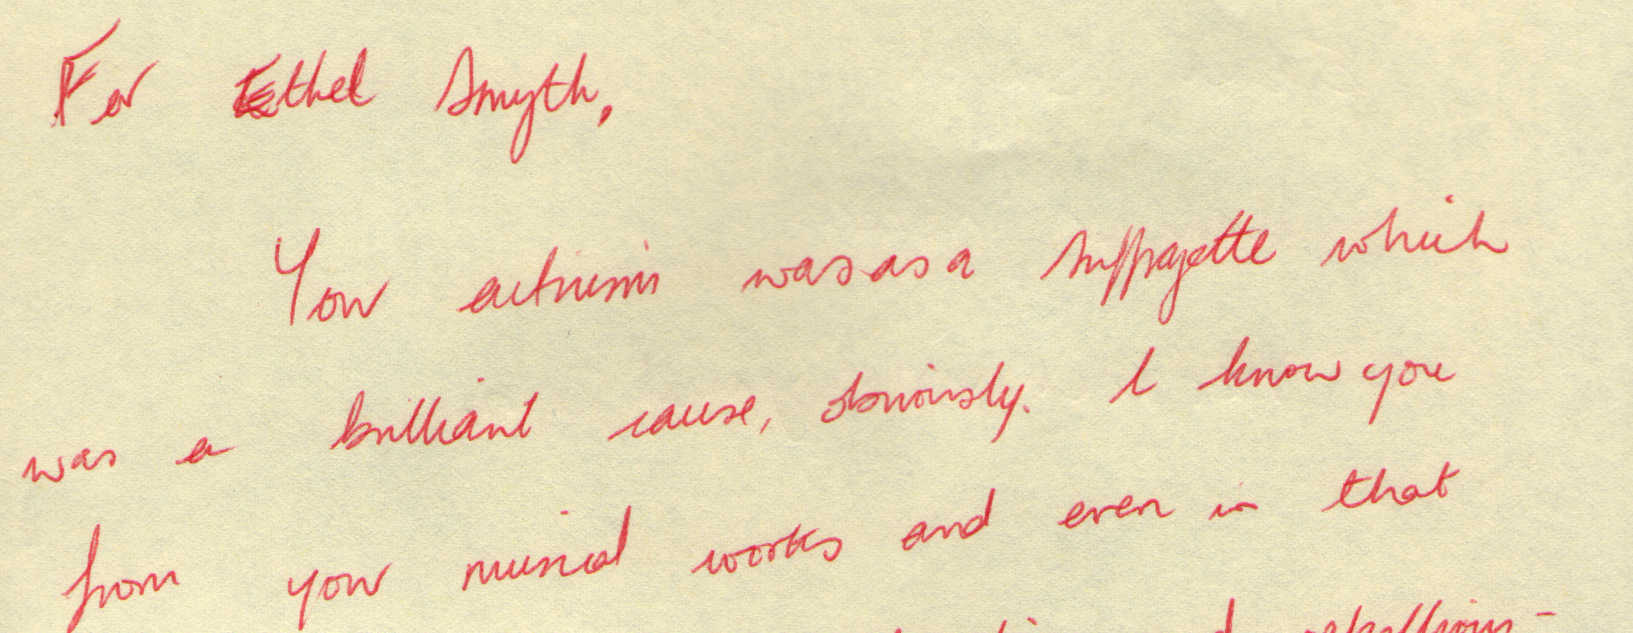 For Ethel Smyth,
Your activism was as a suffragette which
was a brilliant cause, obviously. I know you
from your musical works and even in that
rebellious -